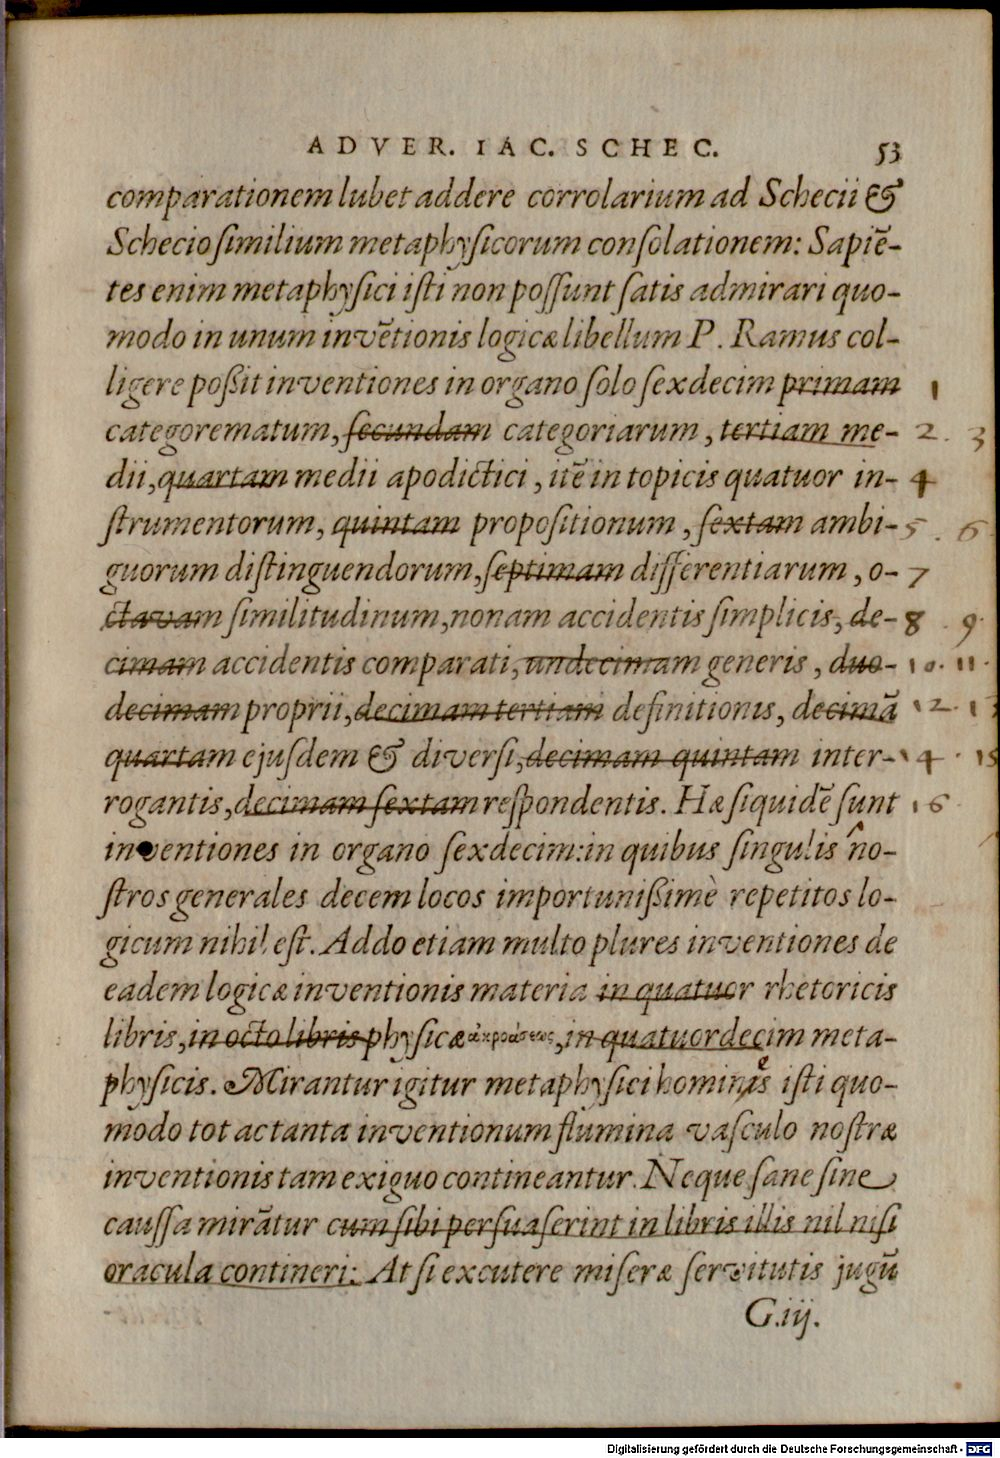 ADVER. IAC. SCHEC. 53
comparationem lubet addere corrolarium ad Schecii &
Schecio ſimilium metaphyſicorum conſolationem: Sapiẽ-
tes enim metaphyſici iſti non poſſunt ſatis admirari quo-
modo in unum invẽtionis logicæ libellum P. Ramus col-
ligere poßit inventiones in organo ſolo ſexdecim primam 1
categorematum, ſecundam categoriarum, tertiam me- 2. 3
dii, quartam medii apodictici, itẽ in topicis quatuor in- 4
ſtrumentorum, quintam propoſitionum, ſextam ambi- 5. 6.
guorum diſtinguendorum, ſeptimam differentiarum, o- 7
ctavam ſimilitudinum, nonam accidentis ſimplicis, de- 8. 9.
cimam accidentis comparati, undecimam generis, duo- 10. 11.
decimam proprii, decimam tertiam definitionis, decimã 12. 13
quartam ejuſdem & diverſi, decimam quintam inter- 14. 15
rogantis, decimam ſextam reſpondentis. Hæ ſiquidẽ ſunt 16
inventiones in organo ſexdecim: in quibus ſingulis no-
ſtros generales decem locos importunißimè repetitos lo-
gicum nihil eſt. Addo etiam multo plures inventiones de
eadem logicæ inventionis materia in quatuor rhetoricis
libris, in octo libris phyſicæ ἀκροάσεως, in quatuordecim meta-
phyſicis. Mirantur igitur metaphyſici hominis e iſti quo-
modo tot ac tanta inventionum flumina vaſculo noſtræ
inventionis tam exiguo contineantur. Neque ſane ſine
cauſſa mirãtur cum ſibi perſuaſerint in libris illis nil niſi
oracula contineri: At ſi excutere miſeræ ſervitutis jugũ
G.iij.
Digitalisierung gefördert durch die Deutsche Forschungsgemeinschaft - DFG